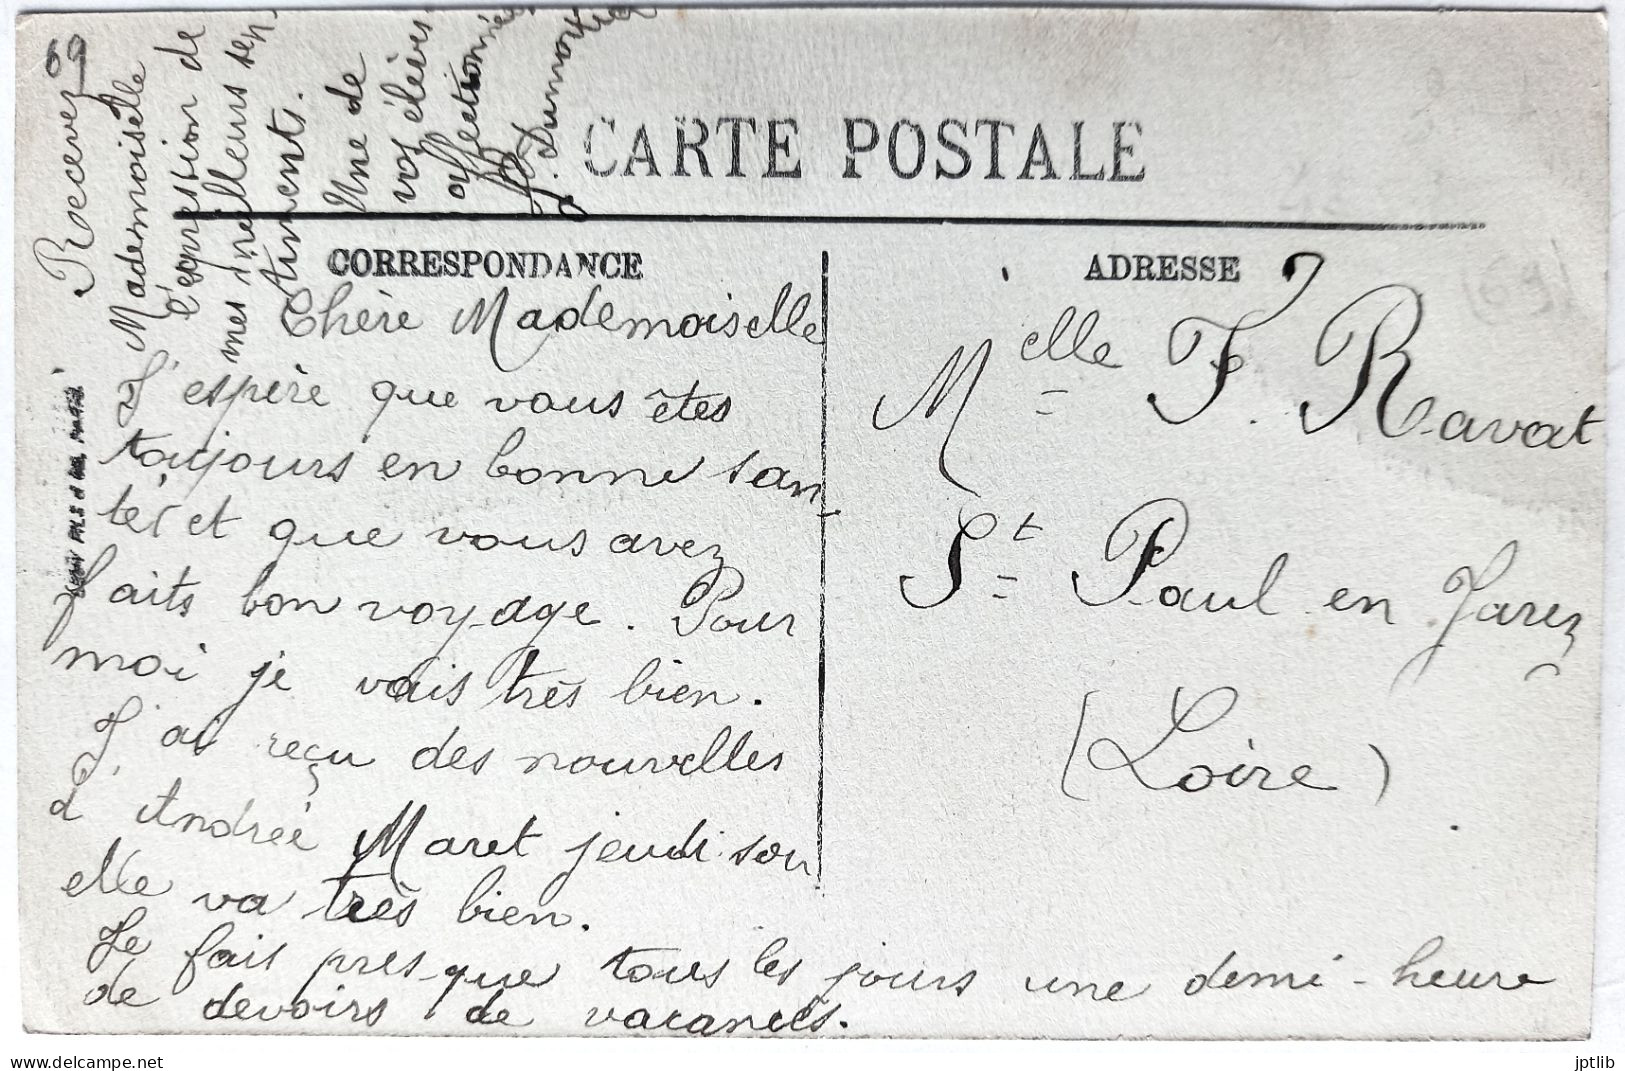 69
CARTE POSTALE
CORRESPONDANCE
ADRESSE
Chère Mademoiselle
J'espère que vous êtes
toujours en bonne san-
té et que vous avez
faits bon voyage. Pour
moi je vais très bien.
J'ai reçu des nouvelles
d'Andrée Maret jeudi soir
elle va très bien.
Je fais presque tous les jours une demi-heure
de devoirs de vacances.
Recevez
Mademoiselle
l'expression de
mes meilleurs sen-
timents.
Une de
vos élèves
affectionnée
J. Dumortier
Melle F. Ravat
St Paul en Jarez
(Loire)
jptlib
www.delcampe.net